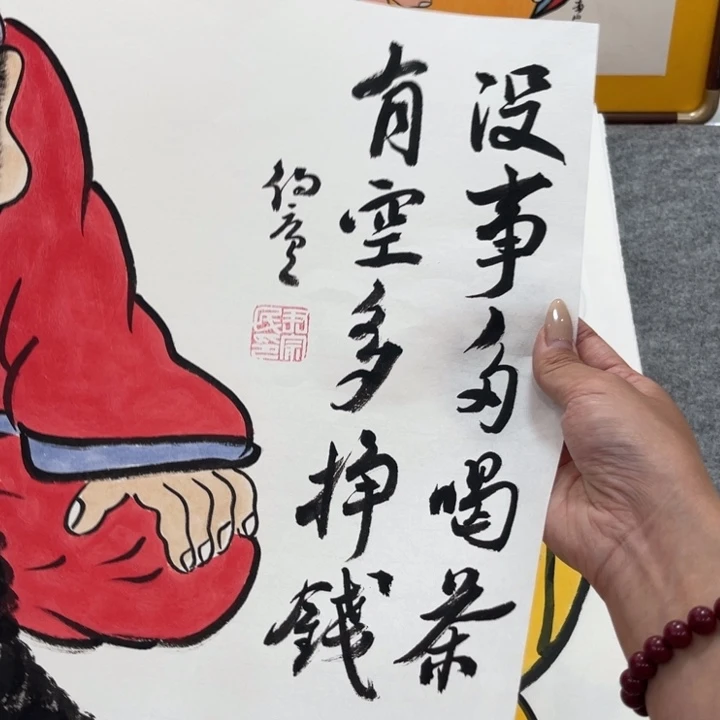 没事多喝茶
有空多挣錢